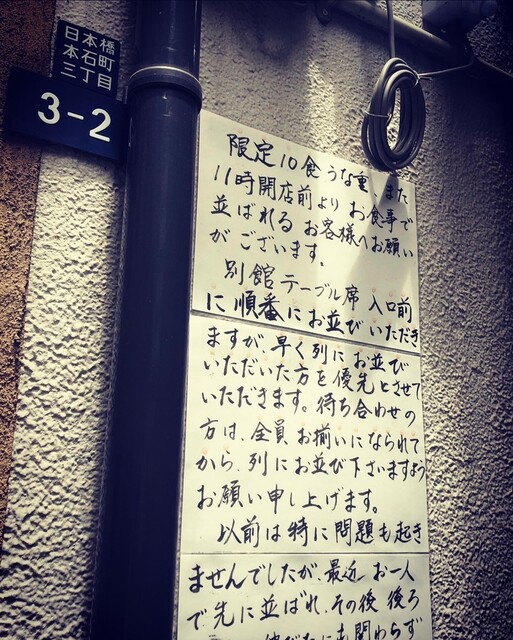 日本橋
本石町
三丁目
3-2
限定10食 うな重、また
11時開店前より お食事で
並ばれる お客様へお願い
がございます。
別館 テーブル席 入口前
に順番にお並びいただき
ますが、早く列にお並び
いただいた方を優先とさせて
いただきます。待ち合わせの
方は、全員お揃いになられて
から、列にお並び下さいますよう
お願い申し上げます。
以前は特に問題も起き
ませんでしたが、最近 お一人
で先に並ばれ、その後 後ろ
にも関わらず